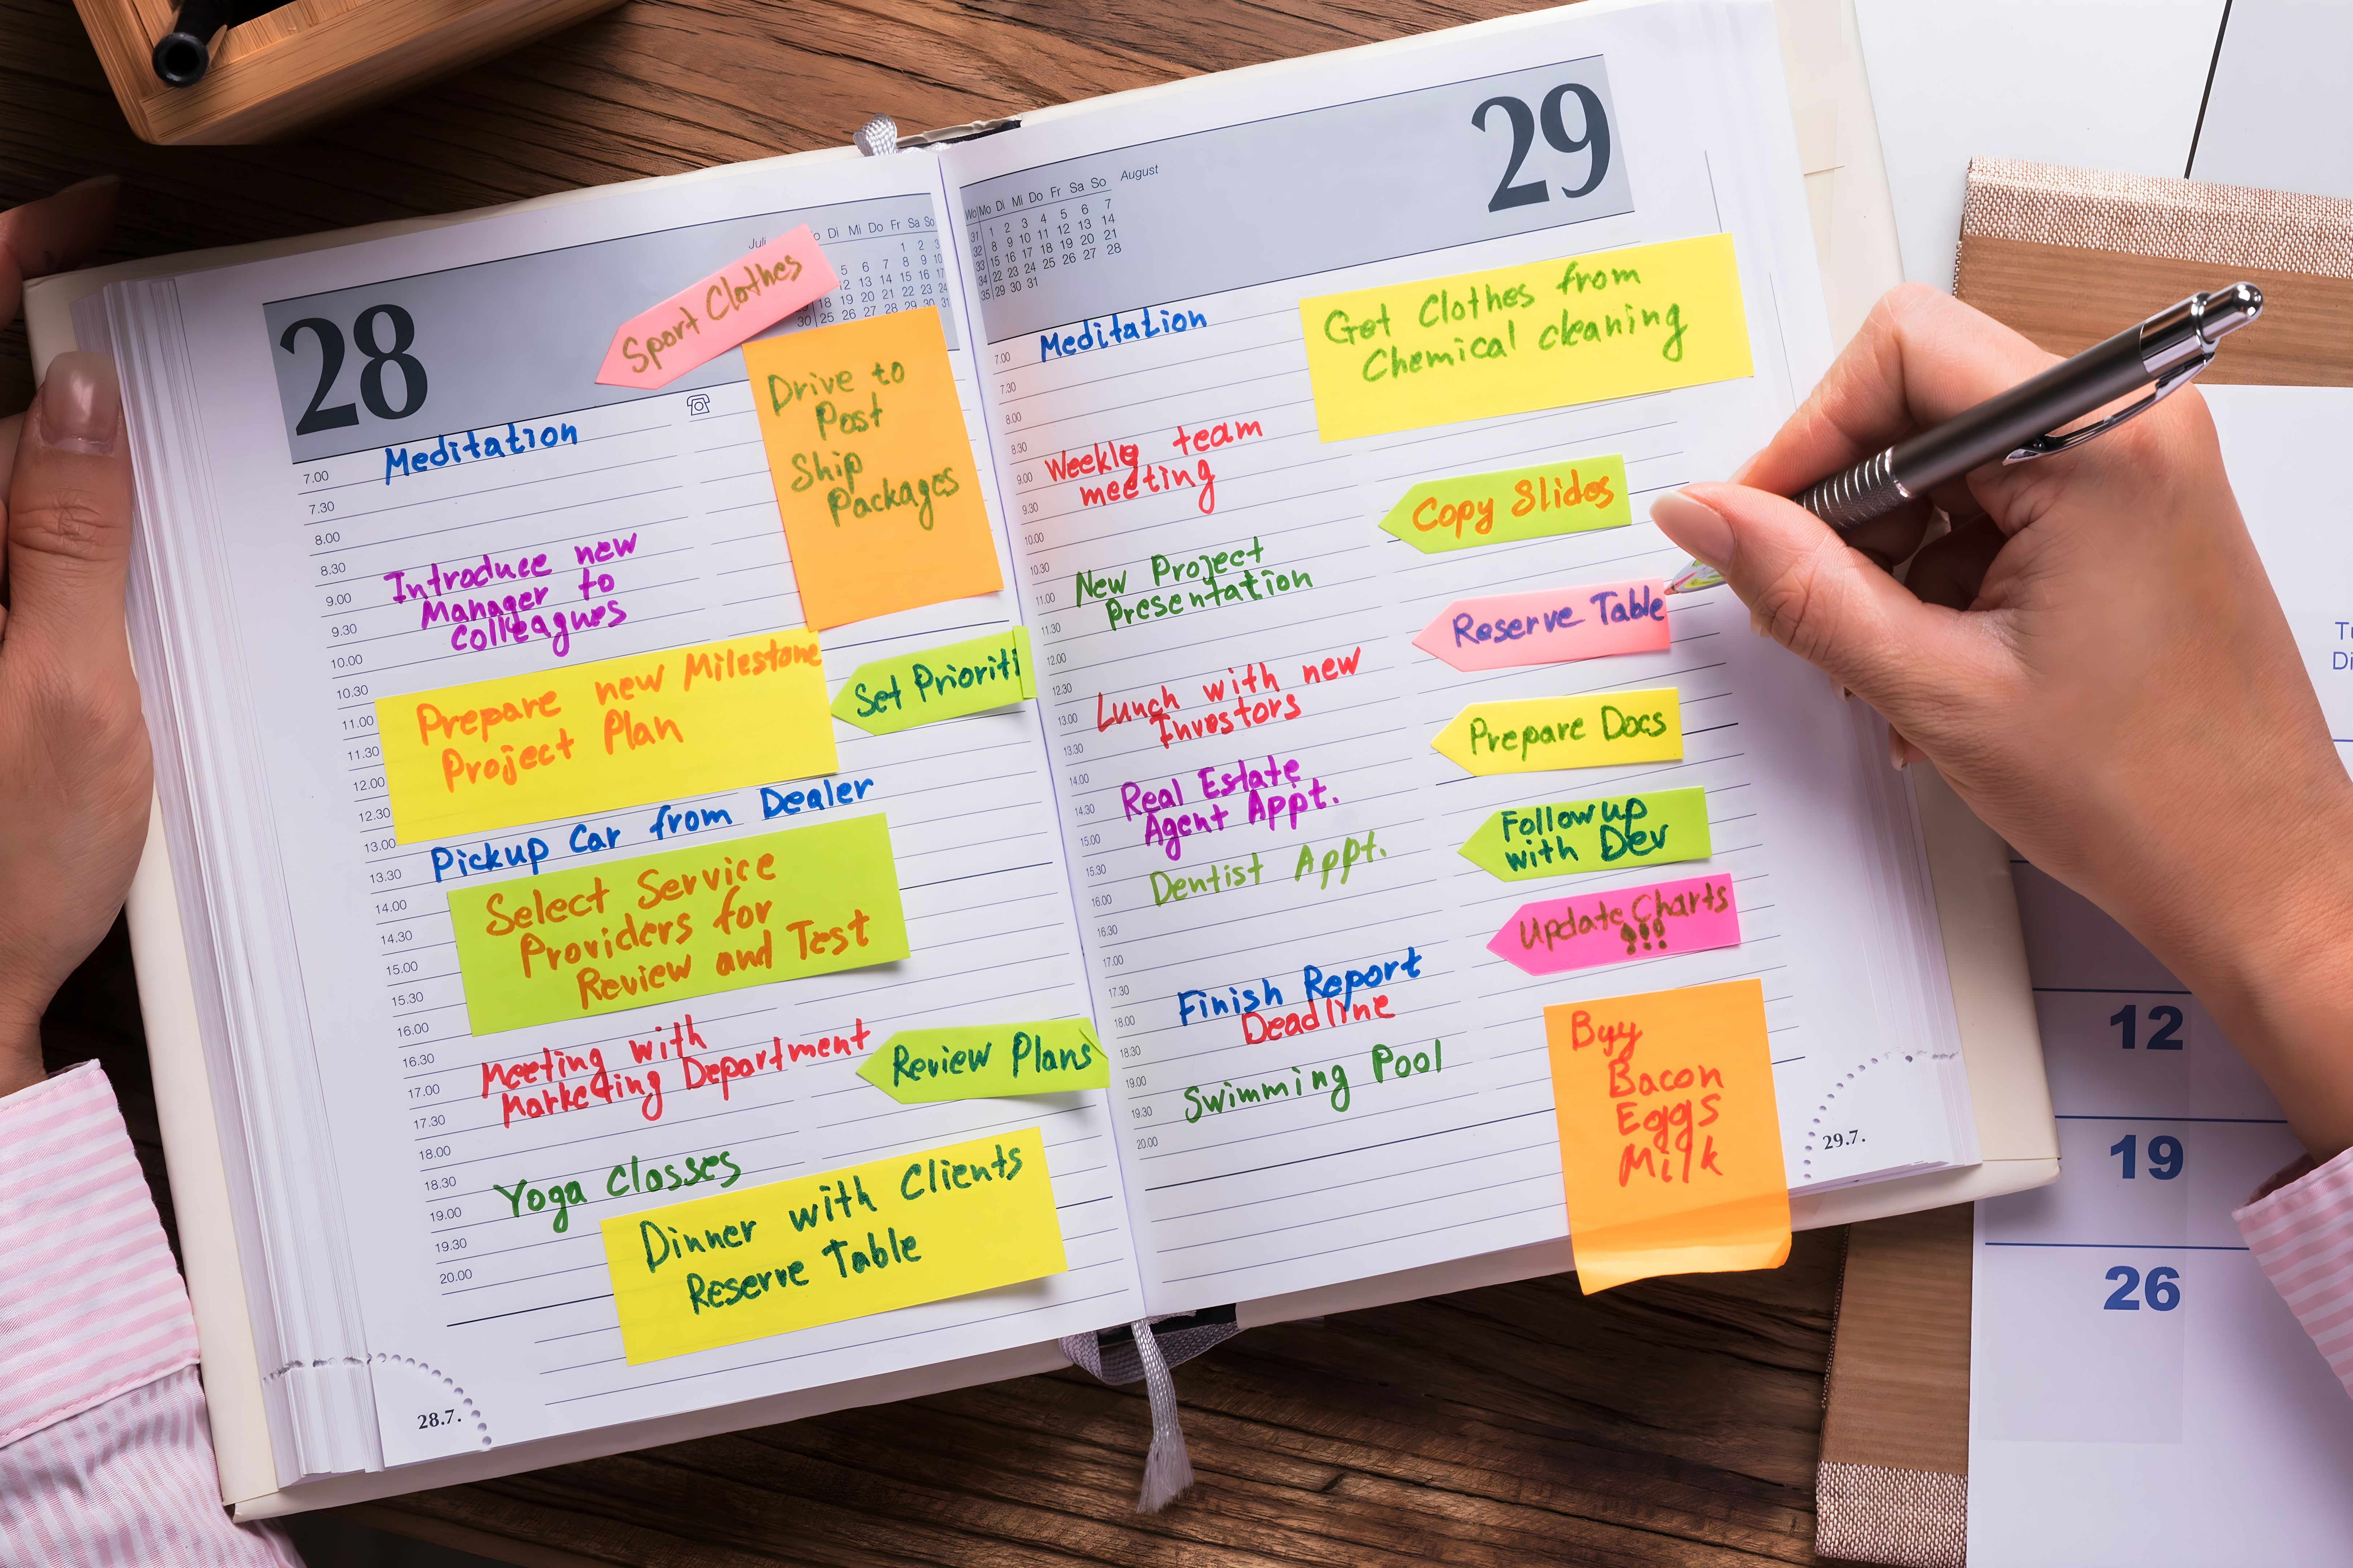 28
Juli
Di Mi Do Fr Sa So
1 2 3
5 6 7 8 9 10
12 13 14 15 16 17
18 19 20 21 22 23 24
30 25 26 27 28 29 30 31
Sport Clothes
Drive to
Post
Ship
Packages
7.00
Meditation
7.30
8.00
8.30
Introduce new
9.00
Manager to
9.30
Colleagues
10.00
10.30
Prepare new Milestone
11.00
Project Plan
Set Prioriti
11.30
12.00
12.30
13.00
Pickup Car from Dealer
13.30
14.00
Select Service
14.30
Providers for
15.00
Review and Test
15.30
16.00
16.30
Meeting with
17.00
Marketing Department
Review Plans
17.30
18.00
18.30
Yoga Classes
19.00
19.30
Dinner with Clients
20.00
Reserve Table
28.7.
29
August
Wo Mo Di Mi Do Fr Sa So
31 1 2 3 4 5 6 7
32 8 9 10 11 12 13 14
33 15 16 17 18 19 20 21
34 22 23 24 25 26 27 28
35 29 30 31
7.00
Meditation
Get Clothes from
Chemical cleaning
7.30
8.00
8.30
Weekly team
9.00
meeting
Copy Slides
9.30
10.00
10.30
New Project
11.00
Presentation
Reserve Table
11.30
12.00
12.30
Lunch with new
13.00
Investors
Prepare Docs
13.30
14.00
Real Estate
14.30
Agent Appt.
Follow up
with Dev
15.00
15.30
Dentist Appt.
16.00
Update Charts
!!!
16.30
17.00
17.30
Finish Report
18.00
Deadline
18.30
19.00
Swimming Pool
19.30
20.00
Buy
Bacon
Eggs
Milk
29.7.
12
19
26